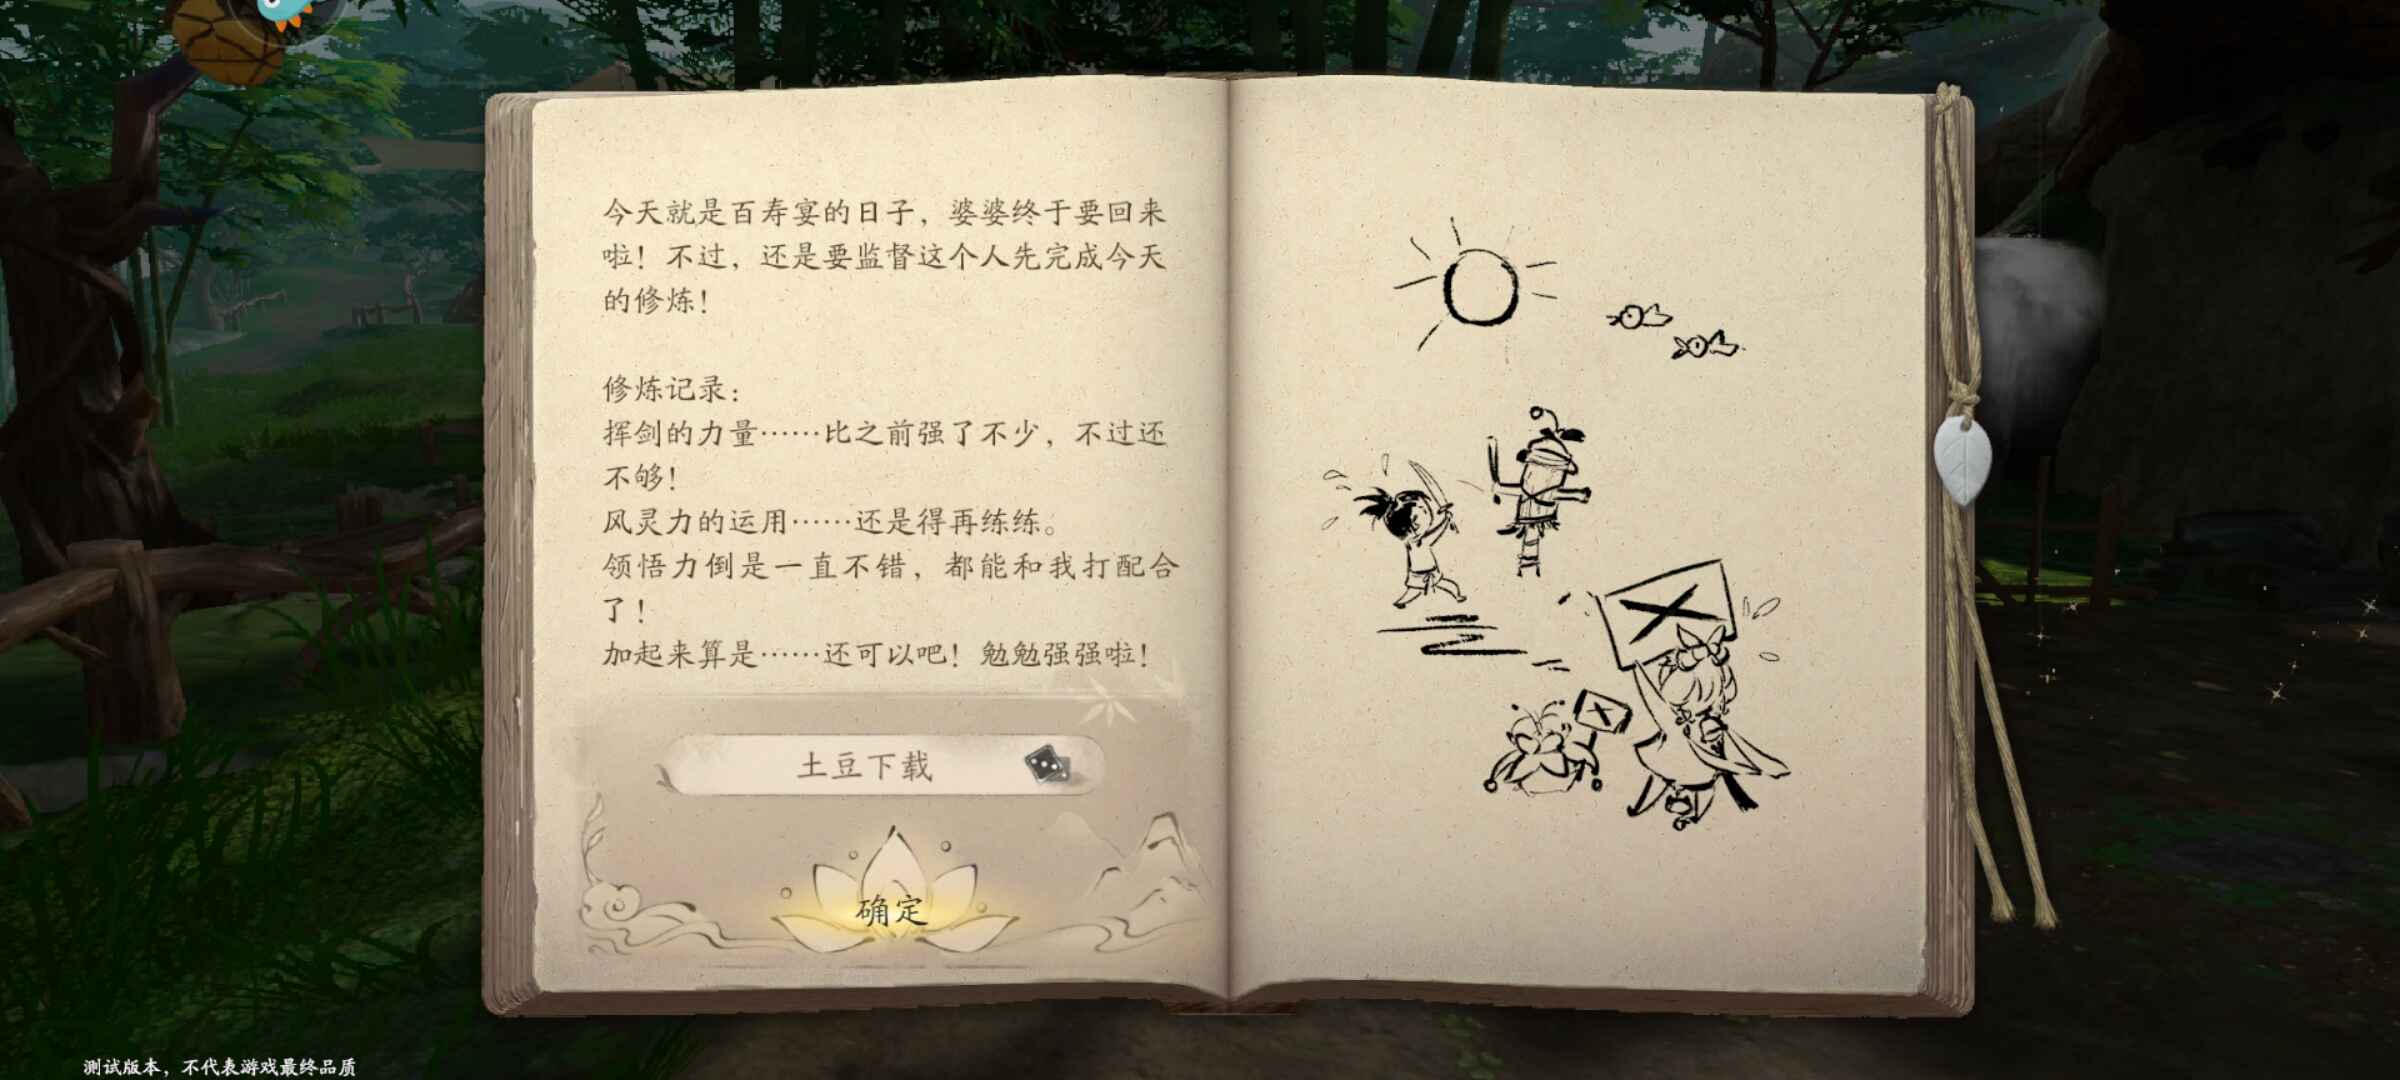 今天就是百寿宴的日子，婆婆终于要回来
啦！不过，还是要监督这个人先完成今天
的修炼！
修炼记录：
挥剑的力量……比之前强了不少，不过还
不够！
风灵力的运用……还是得再练练。
领悟力倒是一直不错，都能和我打配合
了！
加起来算是……还可以吧！勉勉强强啦！
土豆下载
确定
测试版本，不代表游戏最终品质